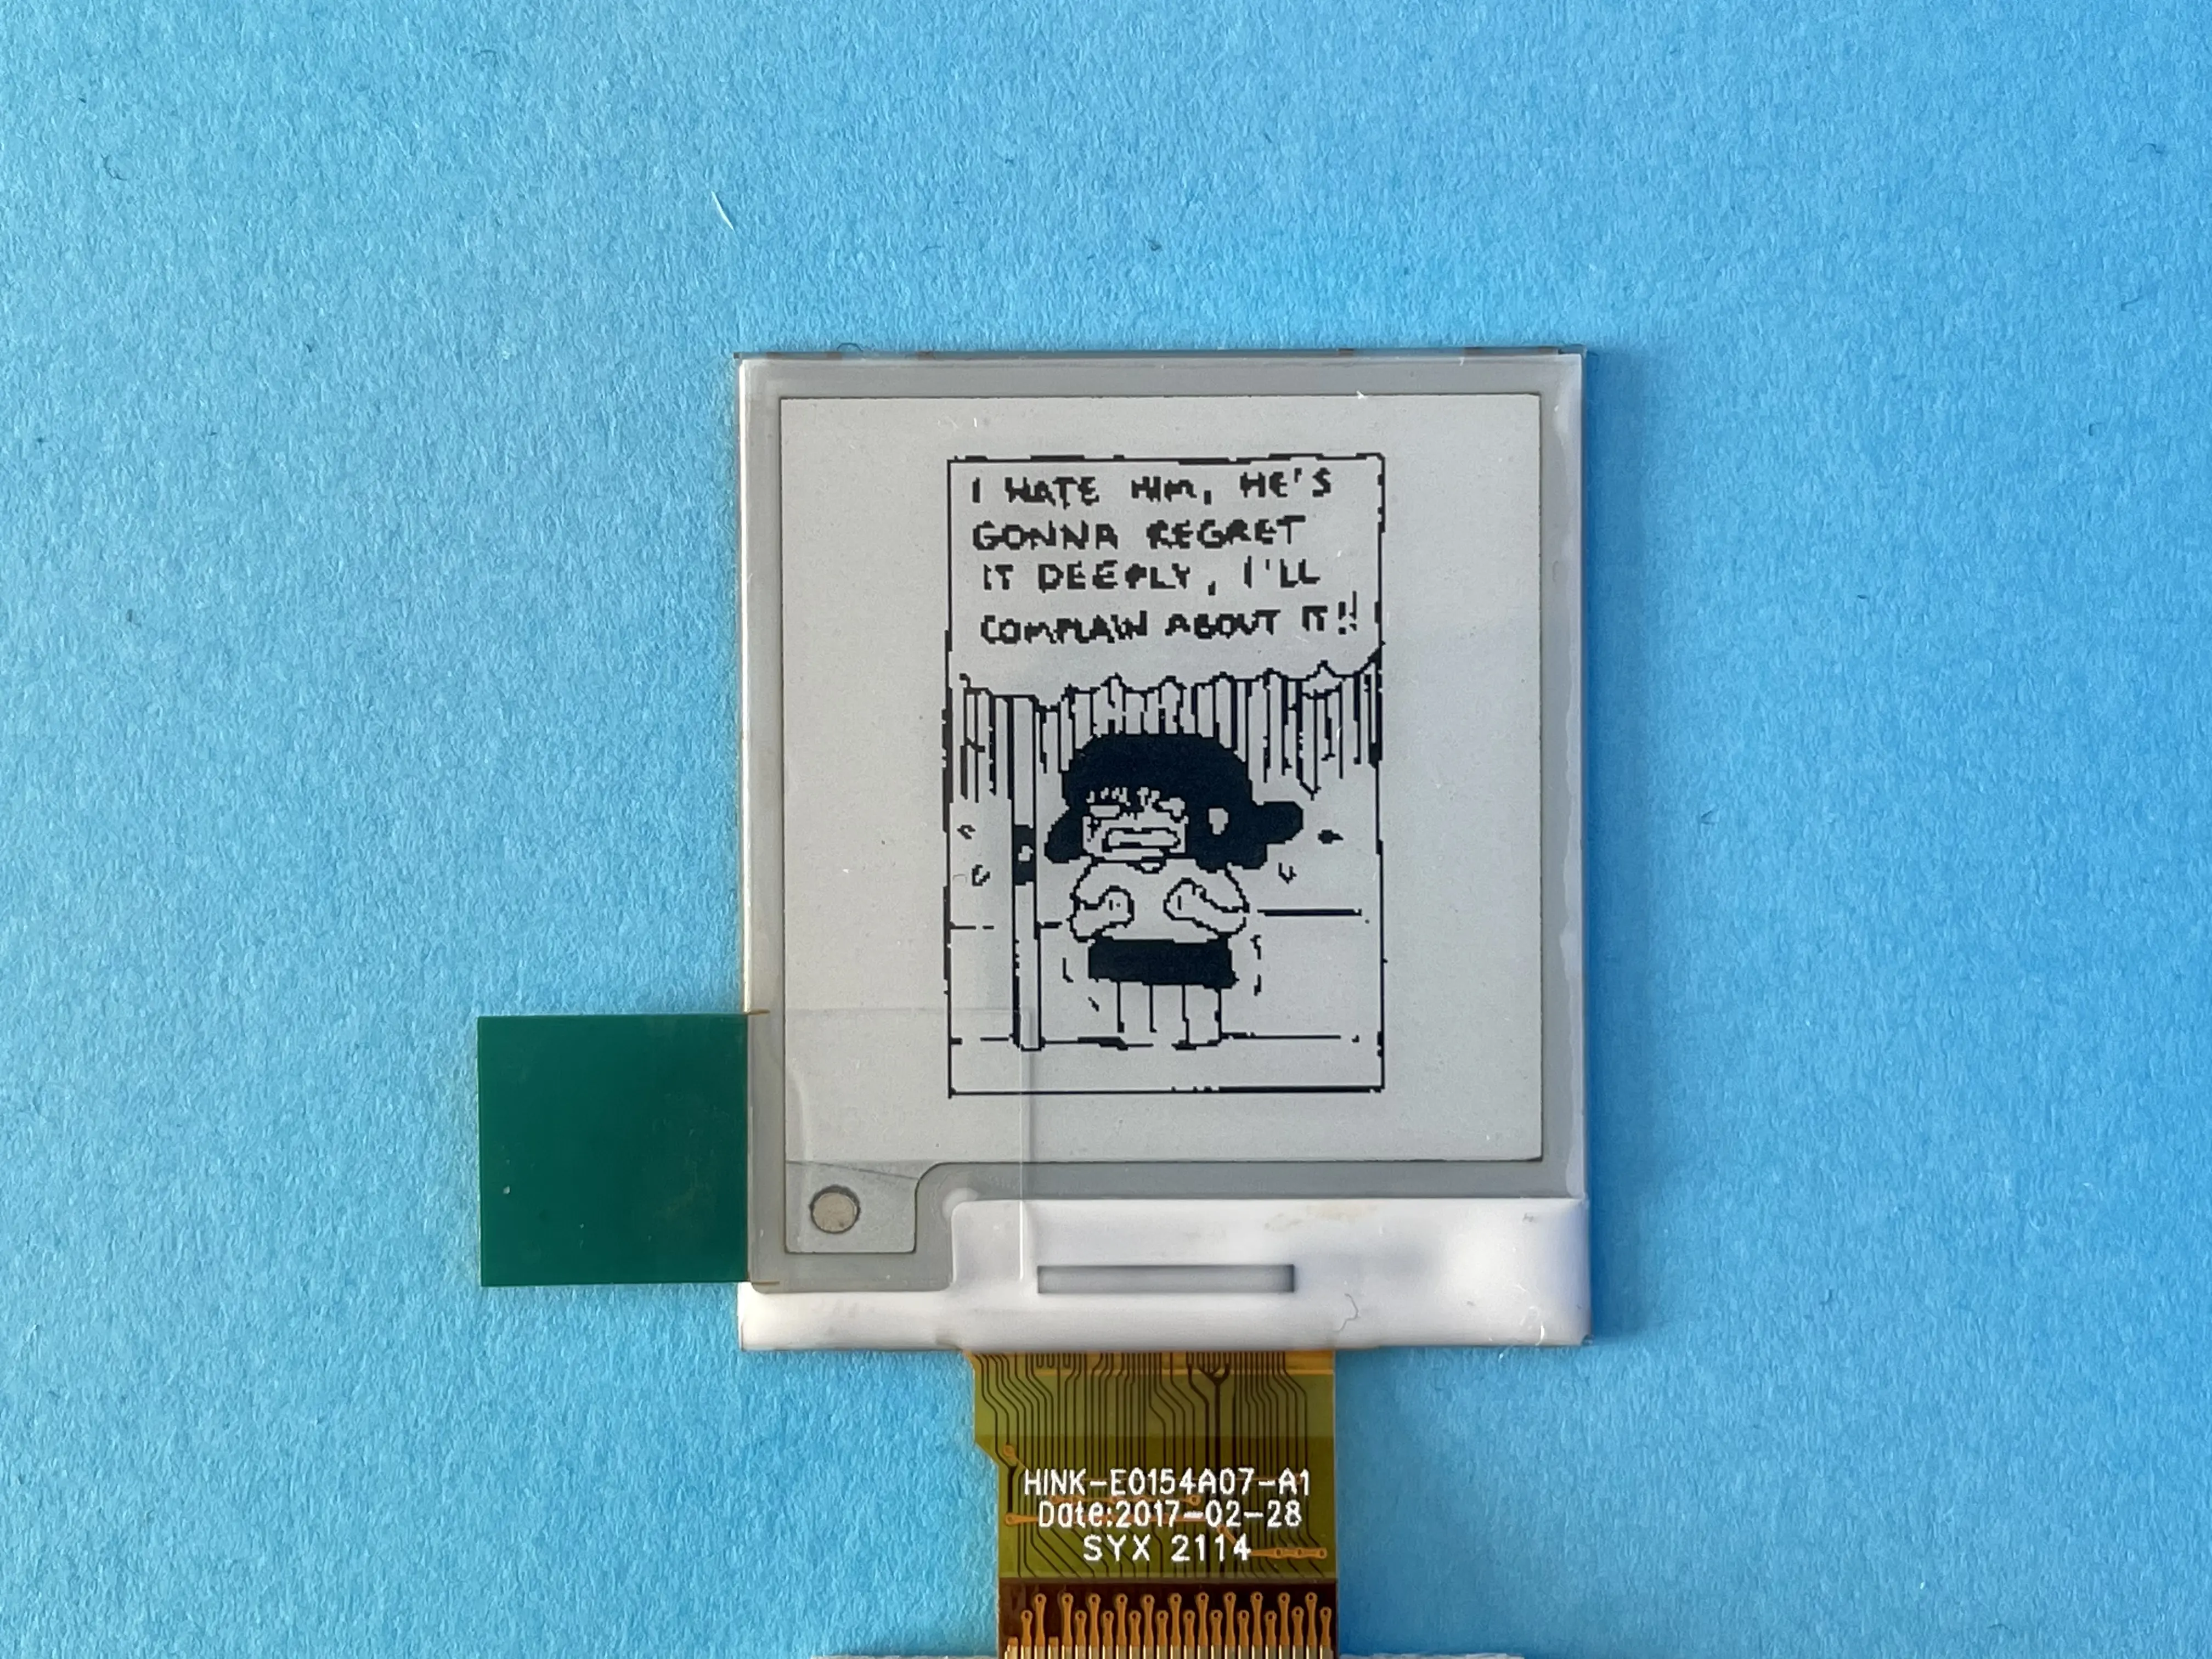 I HATE HIM, HE'S
GONNA REGRET
IT DEEPLY, I'LL
COMPLAIN ABOUT IT!!
HINK-E0154A07-A1
Date:2017-02-28
SYX 2114